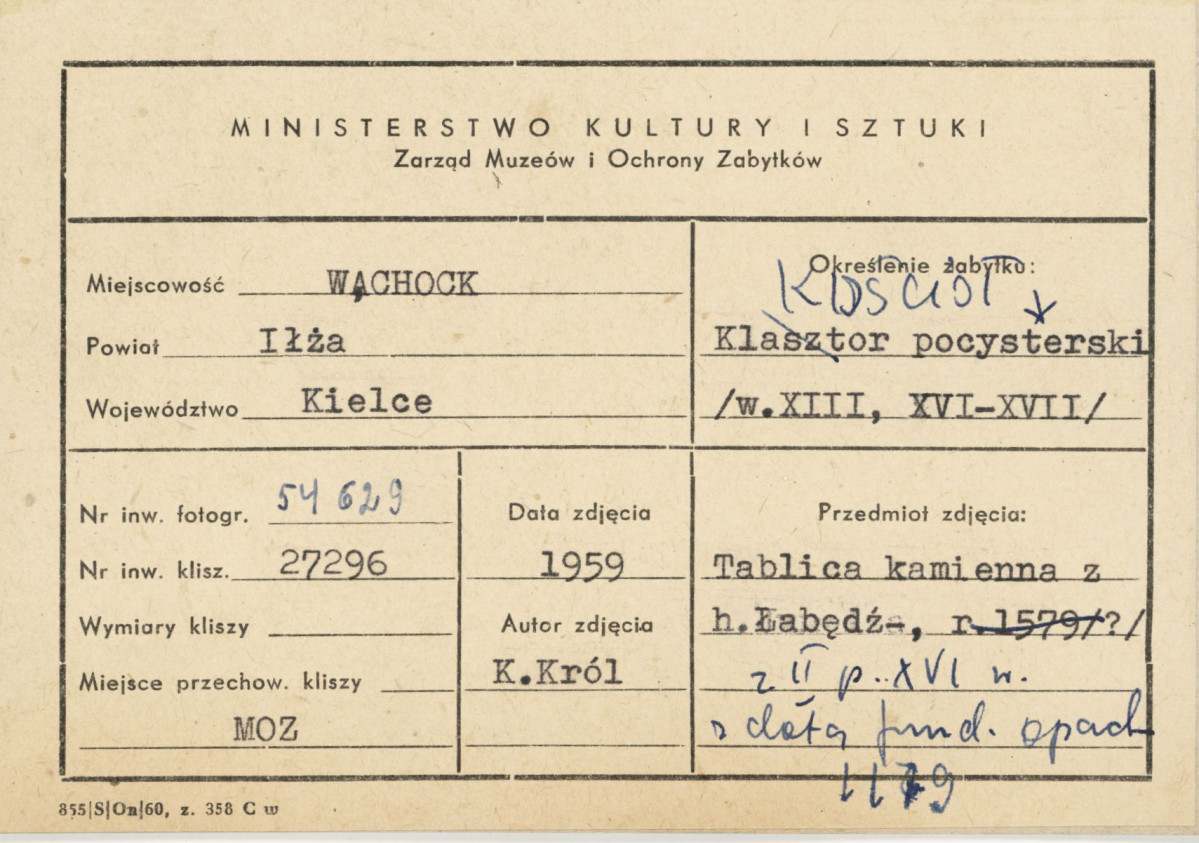 MINISTERSTWO KULTURY I SZTUKI
Zarząd Muzeów i Ochrony Zabytków
Miejscowość WĄCHOCK
Powiat Iłża
Województwo Kielce
Określenie zabytku:
Kościół
Klasztor pocysterski
/w.XIII, XVI-XVII/
Nr inw. fotogr. 54 629
Nr inw. klisz. 27296
Wymiary kliszy
Miejsce przechow. kliszy
MOZ
Data zdjęcia
1959
Autor zdjęcia
K.Król
Przedmiot zdjęcia:
Tablica kamienna z
h.Łabędź-, r.1579/?/
z II p. XVI w.
z datą fund. opact
1179
855|S|On|60, z. 358 C w